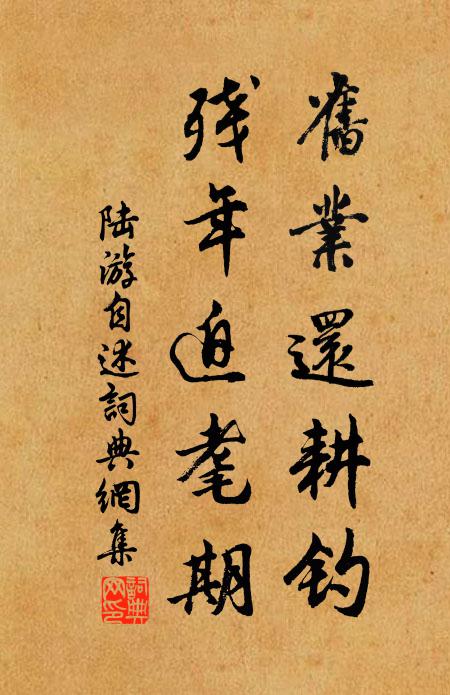 舊業還耕釣
残年迫耄期
陆游自述詞典網集
詞典網印